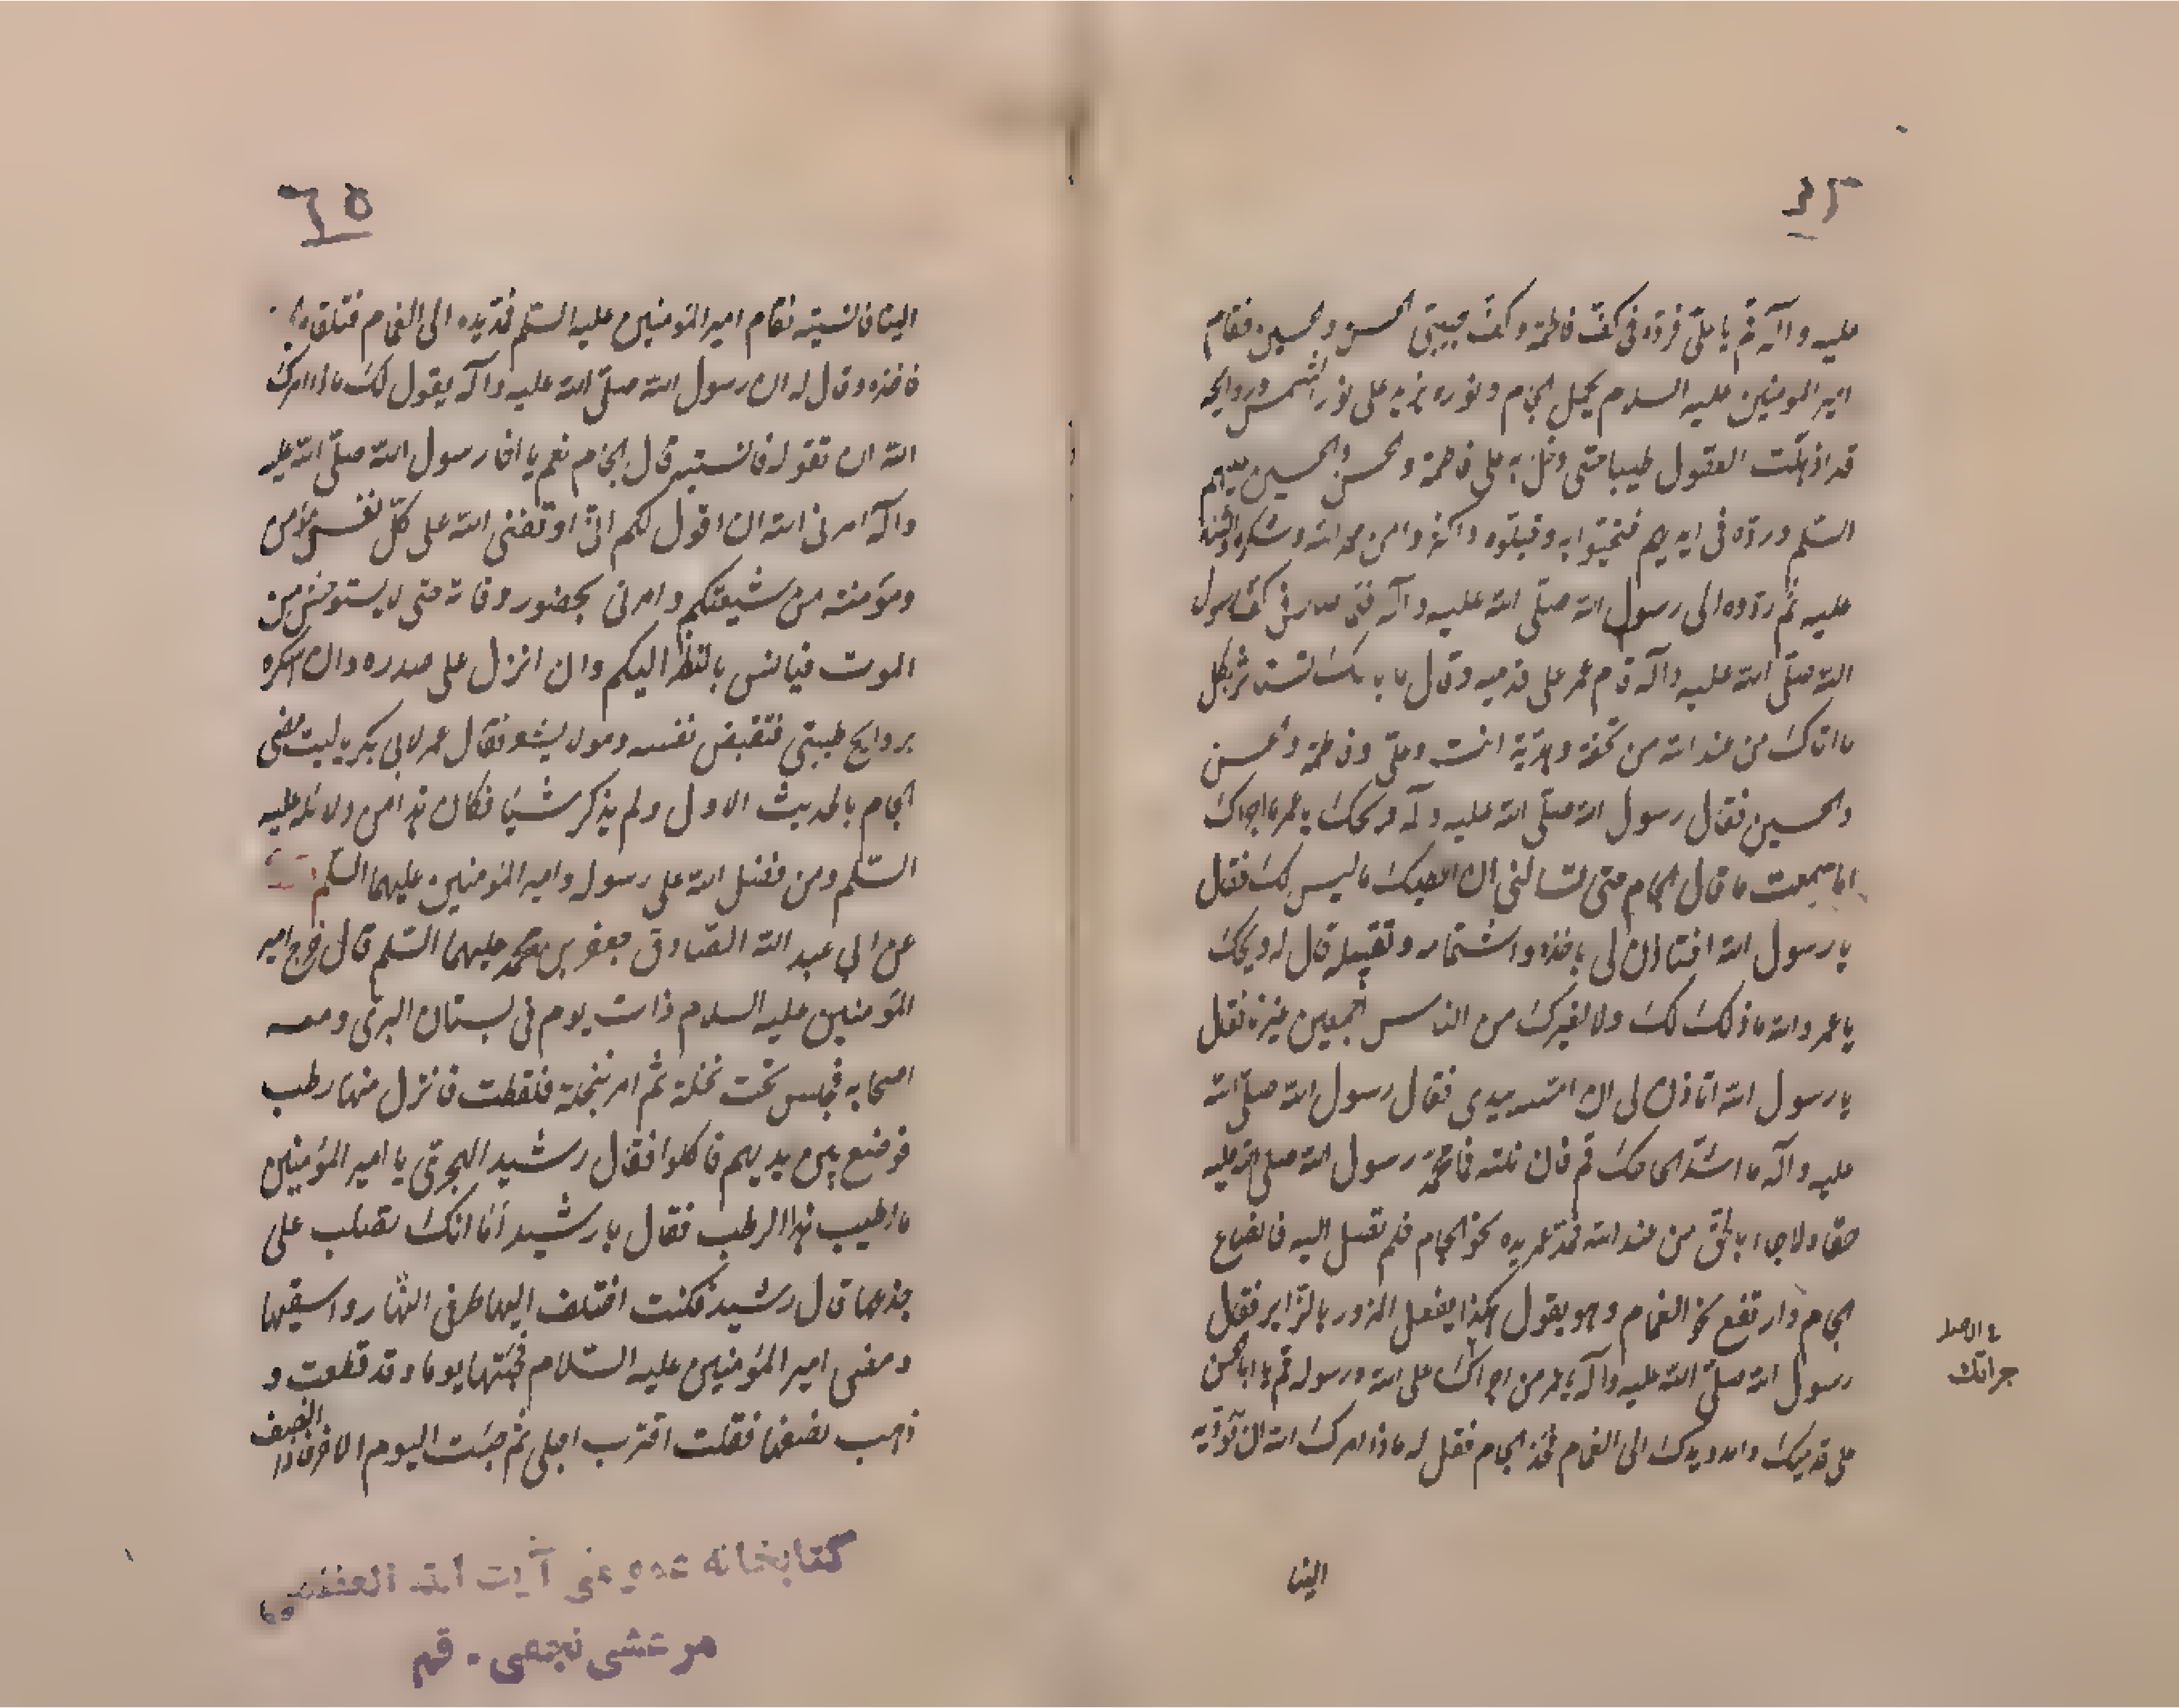 عليه وآله قم يا علي فرده في كف فاطمة وكف حبيبي الحسن والحسين فقام
امير المومنين عليه السلام يحمل الجام ونوره يزيد على نور الشمس وروايحه
قد اذهلت العقول طيبا حتى دخل به على فاطمة والحسن والحسين عليهم
السلم ورده في ايديهم فتحيوا به وقبلوه واكثروا من حمد الله وشكره والثناء
عليه ثم ردوه الى رسول الله صلى الله عليه وآله فلما صار في كف رسول
الله صلى الله عليه وآله قام عمر على قدميه وقال ما بالك تستاثر بكل
ما اتاك من عند الله من تحفة وهدية انت وعلي وفاطمة والحسن
والحسين فقال رسول الله صلى الله عليه وآله ويحك يا عمر ما اجراك
اما سمعت ما قال الجام حتى تسالني ان اعطيك ما ليس لك فقال
يا رسول الله افتاذن لي باخذه واشتمامه وتقبيله قال له ويحك
يا عمر والله ما ذلك لك ولا لغيرك من الناس اجمعين غيرنا فقال
يا رسول الله اتاذن لي ان امسه بيدي فقال رسول الله صلى الله
عليه وآله ما اشد الحاحك قم فان نلته فما محمد رسول الله صلى الله عليه
حقا ولا جاء بالحق من عند الله فمد عمر يده نحو الجام فلم تصل اليه فانصاع
الجام وارتفع نحو الغمام وهو يقول هكذا يفعل المزور بالزاير فقال
رسول الله صلى الله عليه وآله يا عمر من اجراك على الله ورسوله قم يا ابا الحسن
على قدميك وامدد يدك الى الغمام فخذ الجام فقل له ماذا امرك الله ان تؤديه
الاصل
جراتك
الينا
٦٥
الينا فانسيته فقام امير المؤمنين عليه السلم فمد يده الى الغمام فتلقاه
فاخذه وقال له ان رسول الله صلى الله عليه وآله يقول لك ماذا امرك
الله ان تقوله فانسيته قال الجام نعم يا اخا رسول الله صلى الله عليه
وآله امرني الله ان اقول لكم اني اوقفني الله على كل نفس مؤمن
ومؤمنة من شيعتكم وامرني بحضور وفاته حتى لا يستوحش من
الموت فيانس بالنظر اليكم وان انزل على صدره وان اسكره
بروايح طيبتي فتقبض نفسه وهو لا يشعر فقال عمر لابي بكر يا ليت مضى
الجام بالحديث الاول ولم يذكر شيئا فكان هذا من دلائله عليه
السلم ومن فضل الله على رسوله وامير المؤمنين عليهما السلم
عن ابي عبد الله الصادق جعفر بن محمد عليهما السلم قال خرج امير
المؤمنين عليه السلام ذات يوم في بستان البرني ومعه
اصحابه فجلس تحت نخلة ثم امر بنخلة فلقطت فانزل منها رطب
فوضع بين يديهم فاكلوا فقال رشيد الهجري يا امير المؤمنين
ما اطيب هذا الرطب فقال يا رشيد أما انك تصلب على
جذعها قال رشيد فكنت اختلف اليها طرفي النهار واسقيها
ومضى امير المؤمنين عليه السلام فجئتها يوما وقد قطعت و
ذهب نصفها فقلت اقترب اجلي ثم جئت اليوم الاخر فاذا النصف
كتابخانه عمومی آیت الله العظمی
مرعشی نجفی - قم